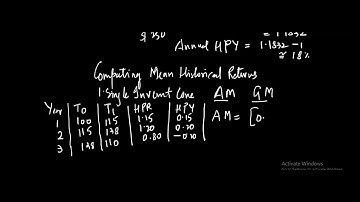 = 1.1832
$ 250
Annual HPY = 1.1832 - 1
≅ 18%
Computing Mean Historical Returns
1. Single Investment Case AM GM
Year T0 T1 HPR HPY AM = [0.
1 100 115 1.15 0.15
2 115 138 1.20 0.20
3 138 110 0.80 -0.20
Activate Windows